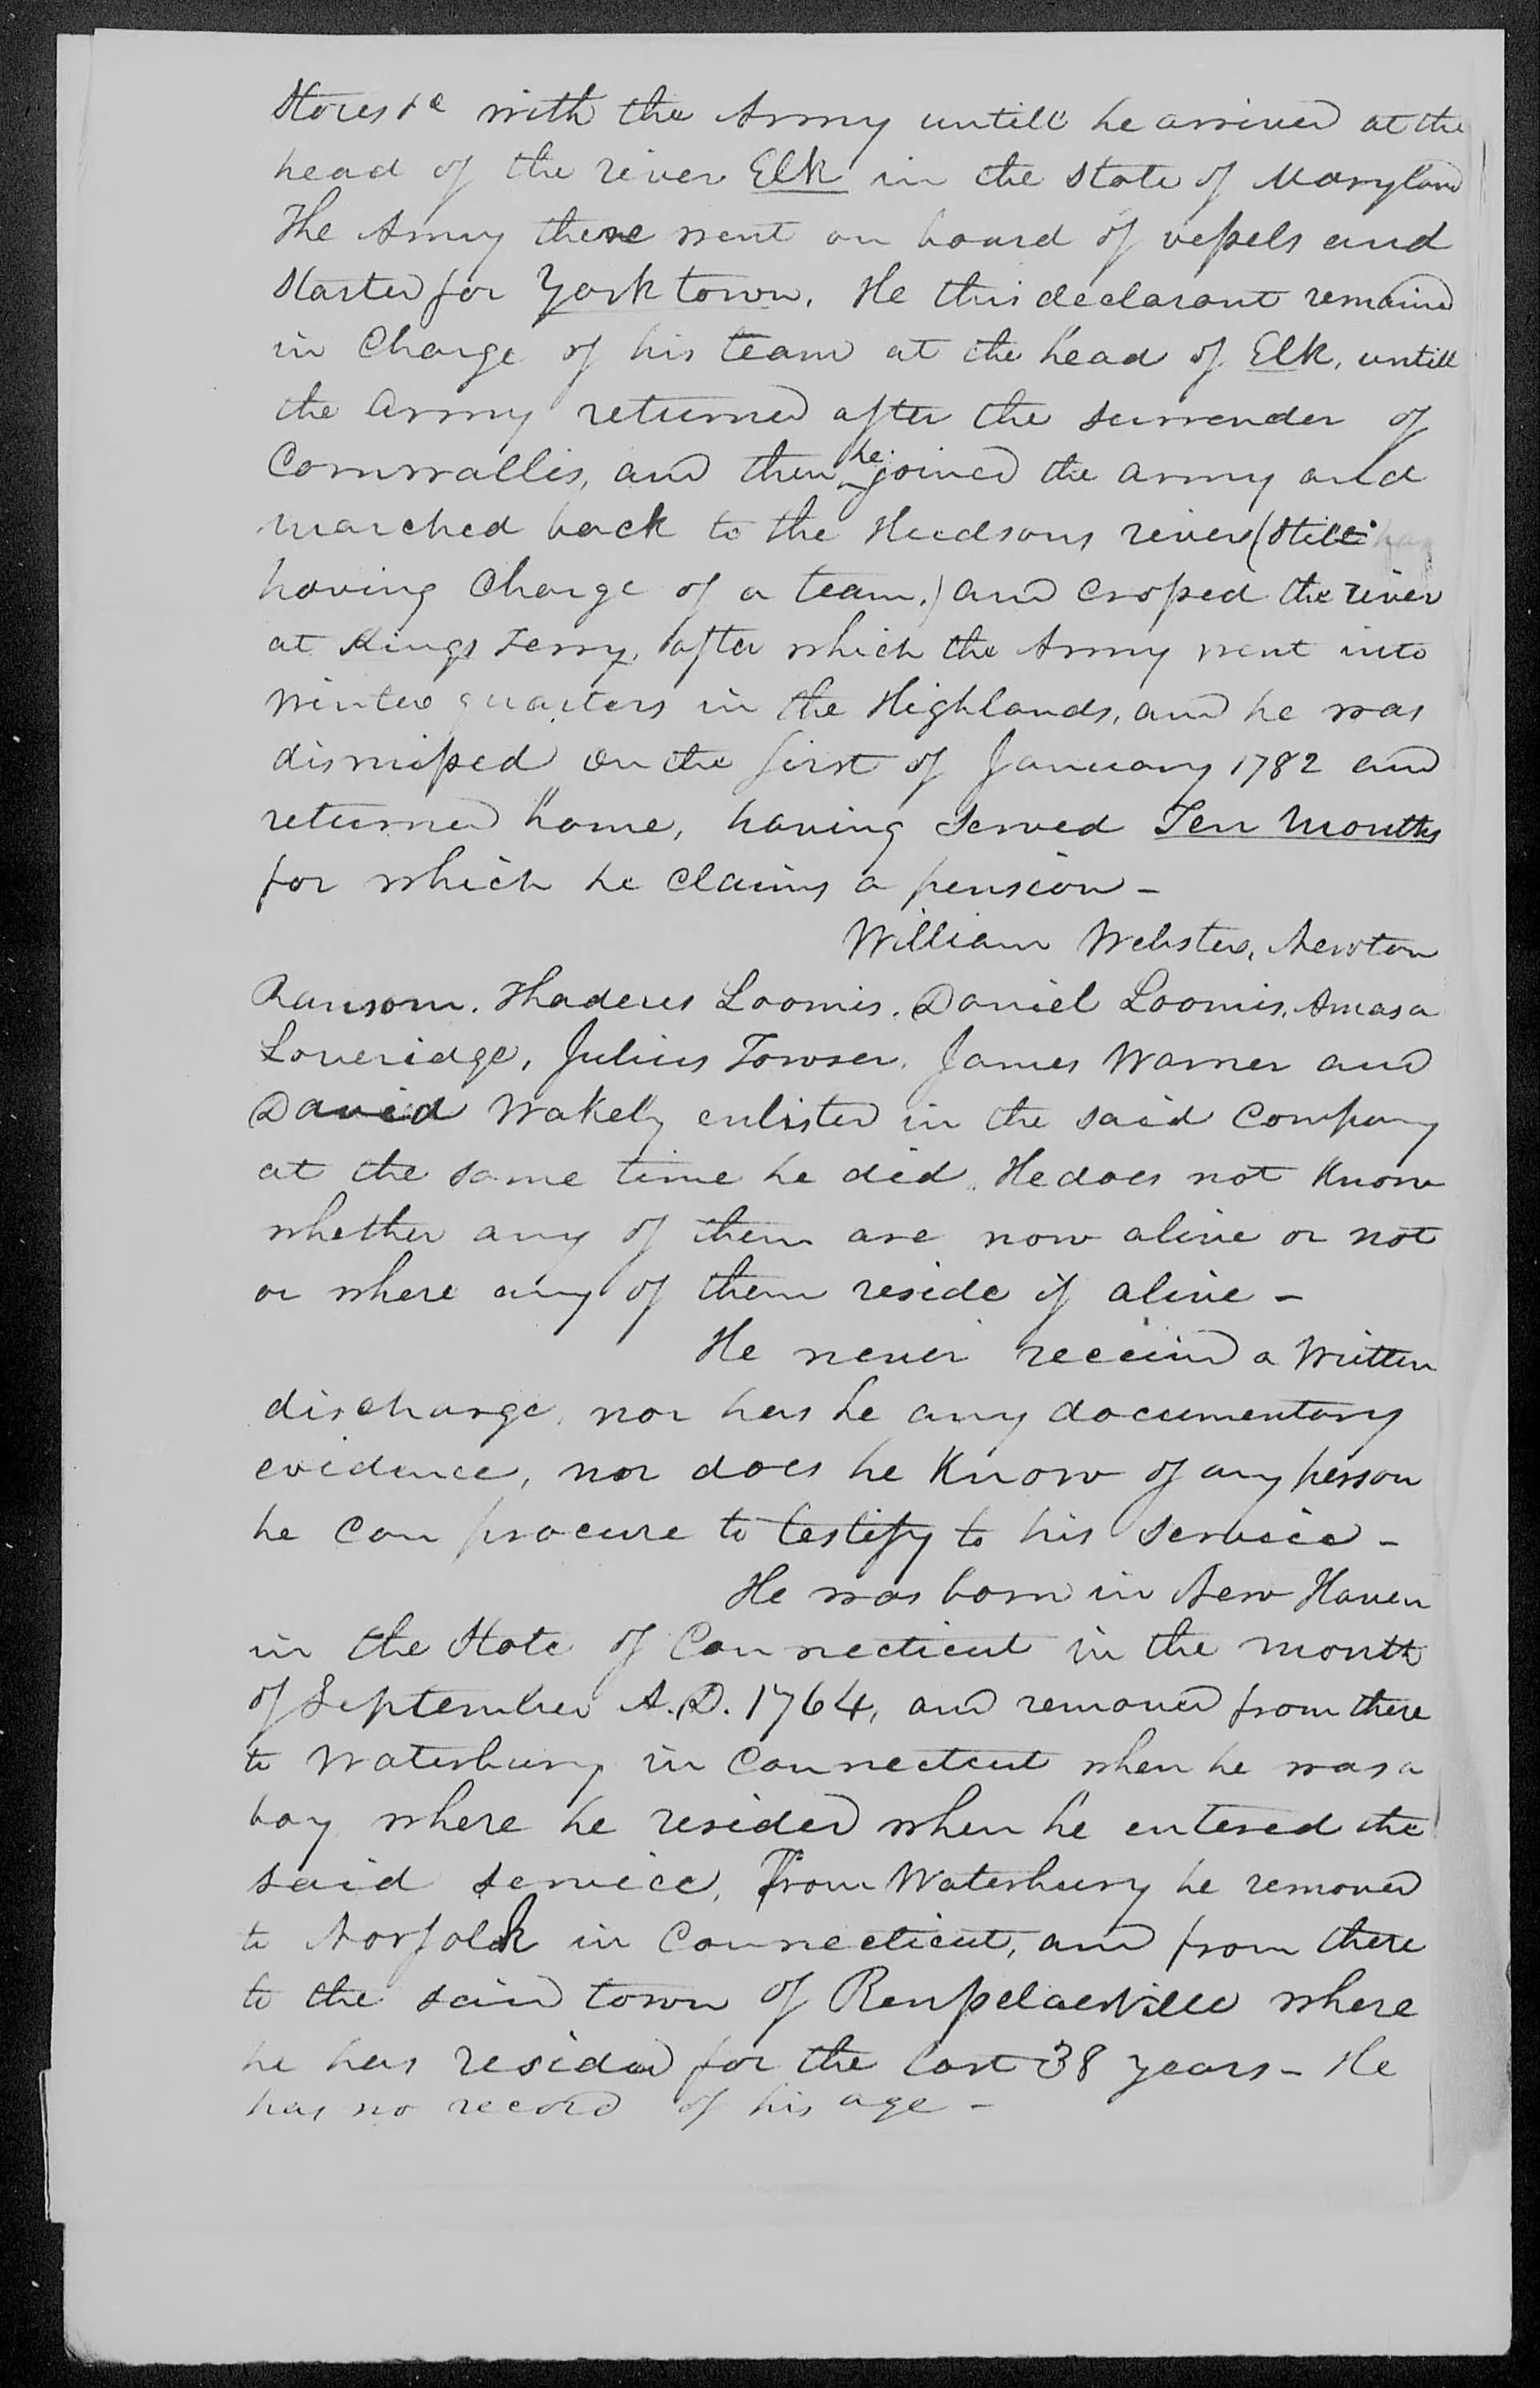 Stores &c with the Army untill he arrived at the
head of the river Elk in the State of Maryland
The Army there went on board of vessels and
Started for York town. He this declarant remained
in Charge of his team at the head of Elk, untill
the army returned after the surrender of
Cornwallis, and then he joined the army and
marched back to the Hudsons river (Still
having Charge of a team,) and crossed the river
at Kings Ferry, after which the Army went into
winter quarters in the Highlands, and he was
dismissed on the first of January 1782 and
returned home, having served Ten Months
for which he claims a pension -
William Webster, Newton
Ransom. Thadeus Loomis. Daniel Loomis, Amasa
Loveridge, Julius Towser. James Warner and
David Wakely enlisted in the said Company
at the same time he did. He does not Know
whether any of them are now alive or not
or where any of them reside if alive -
He never received a Written
discharge, nor has he any documentary
evidence, nor does he Know of any person
he can procure to testify to his service -
He was born in New Haven
in the State of Connecticut in the month
of September A.D. 1764, and removed from there
to Waterbury in Connecticut when he was a
boy where he resided when he entered the
said service. From Waterbury he removed
to Norfolk in Connecticut, and from there
to the said town of Rensselaerville where
he has resided for the last 38 years - He
has no record of his age -